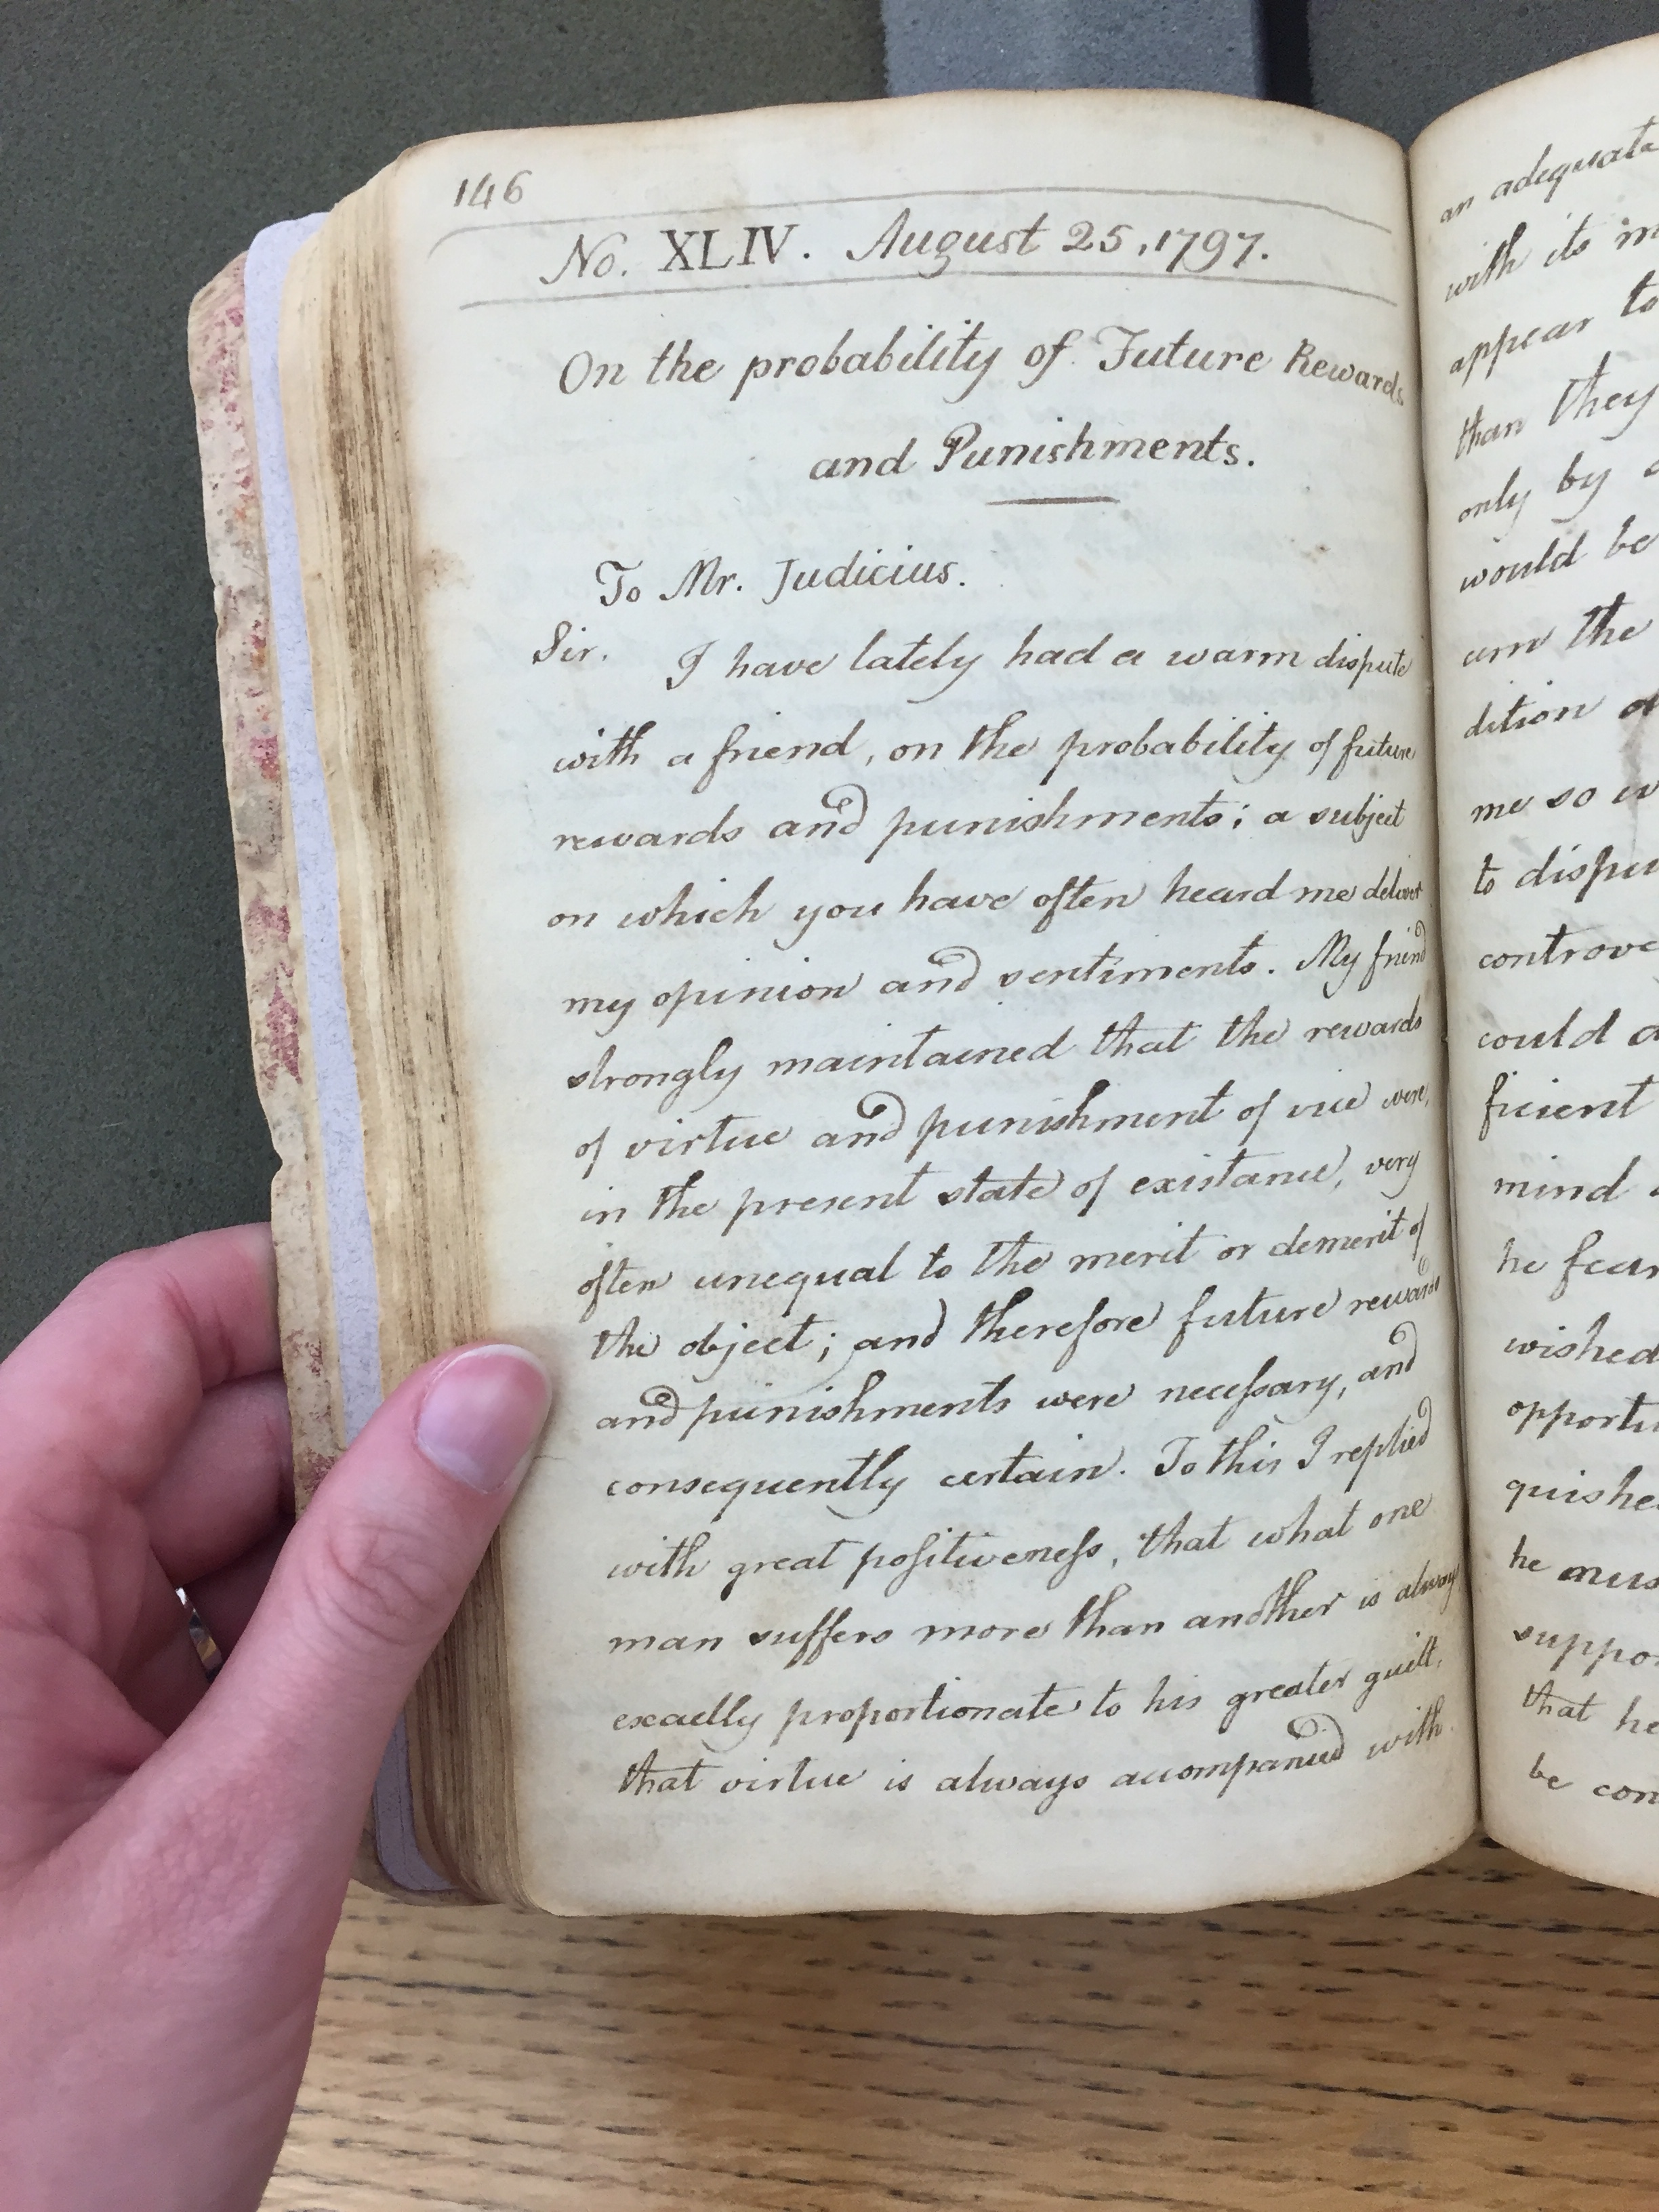 146
No. XLIV. August 25, 1797.
On the probability of Future Rewards
and Punishments.
To Mr. Judicius.
Sir. I have lately had a warm dispute
with a friend, on the probability of future
rewards and punishments; a subject
on which you have often heard me deliver
my opinion and sentiments. My friend
strongly maintained that the rewards
of virtue and punishment of vice were,
in the present state of existance, very
often unequal to the merit or demerit of
the object; and therefore future rewards
and punishments were necessary, and
consequently certain. To this I replied
with great positiveness, that what one
man suffers more than another is always
exactly proportionate to his greater guilt,
that virtue is always accompanied with
an adequate
with its
appear to
than they
only by
would be
am the
dition
me so
to
controve
could
ficient
mind
he fear
wished
opportu
quishe
he mus
suppo
that he
be con